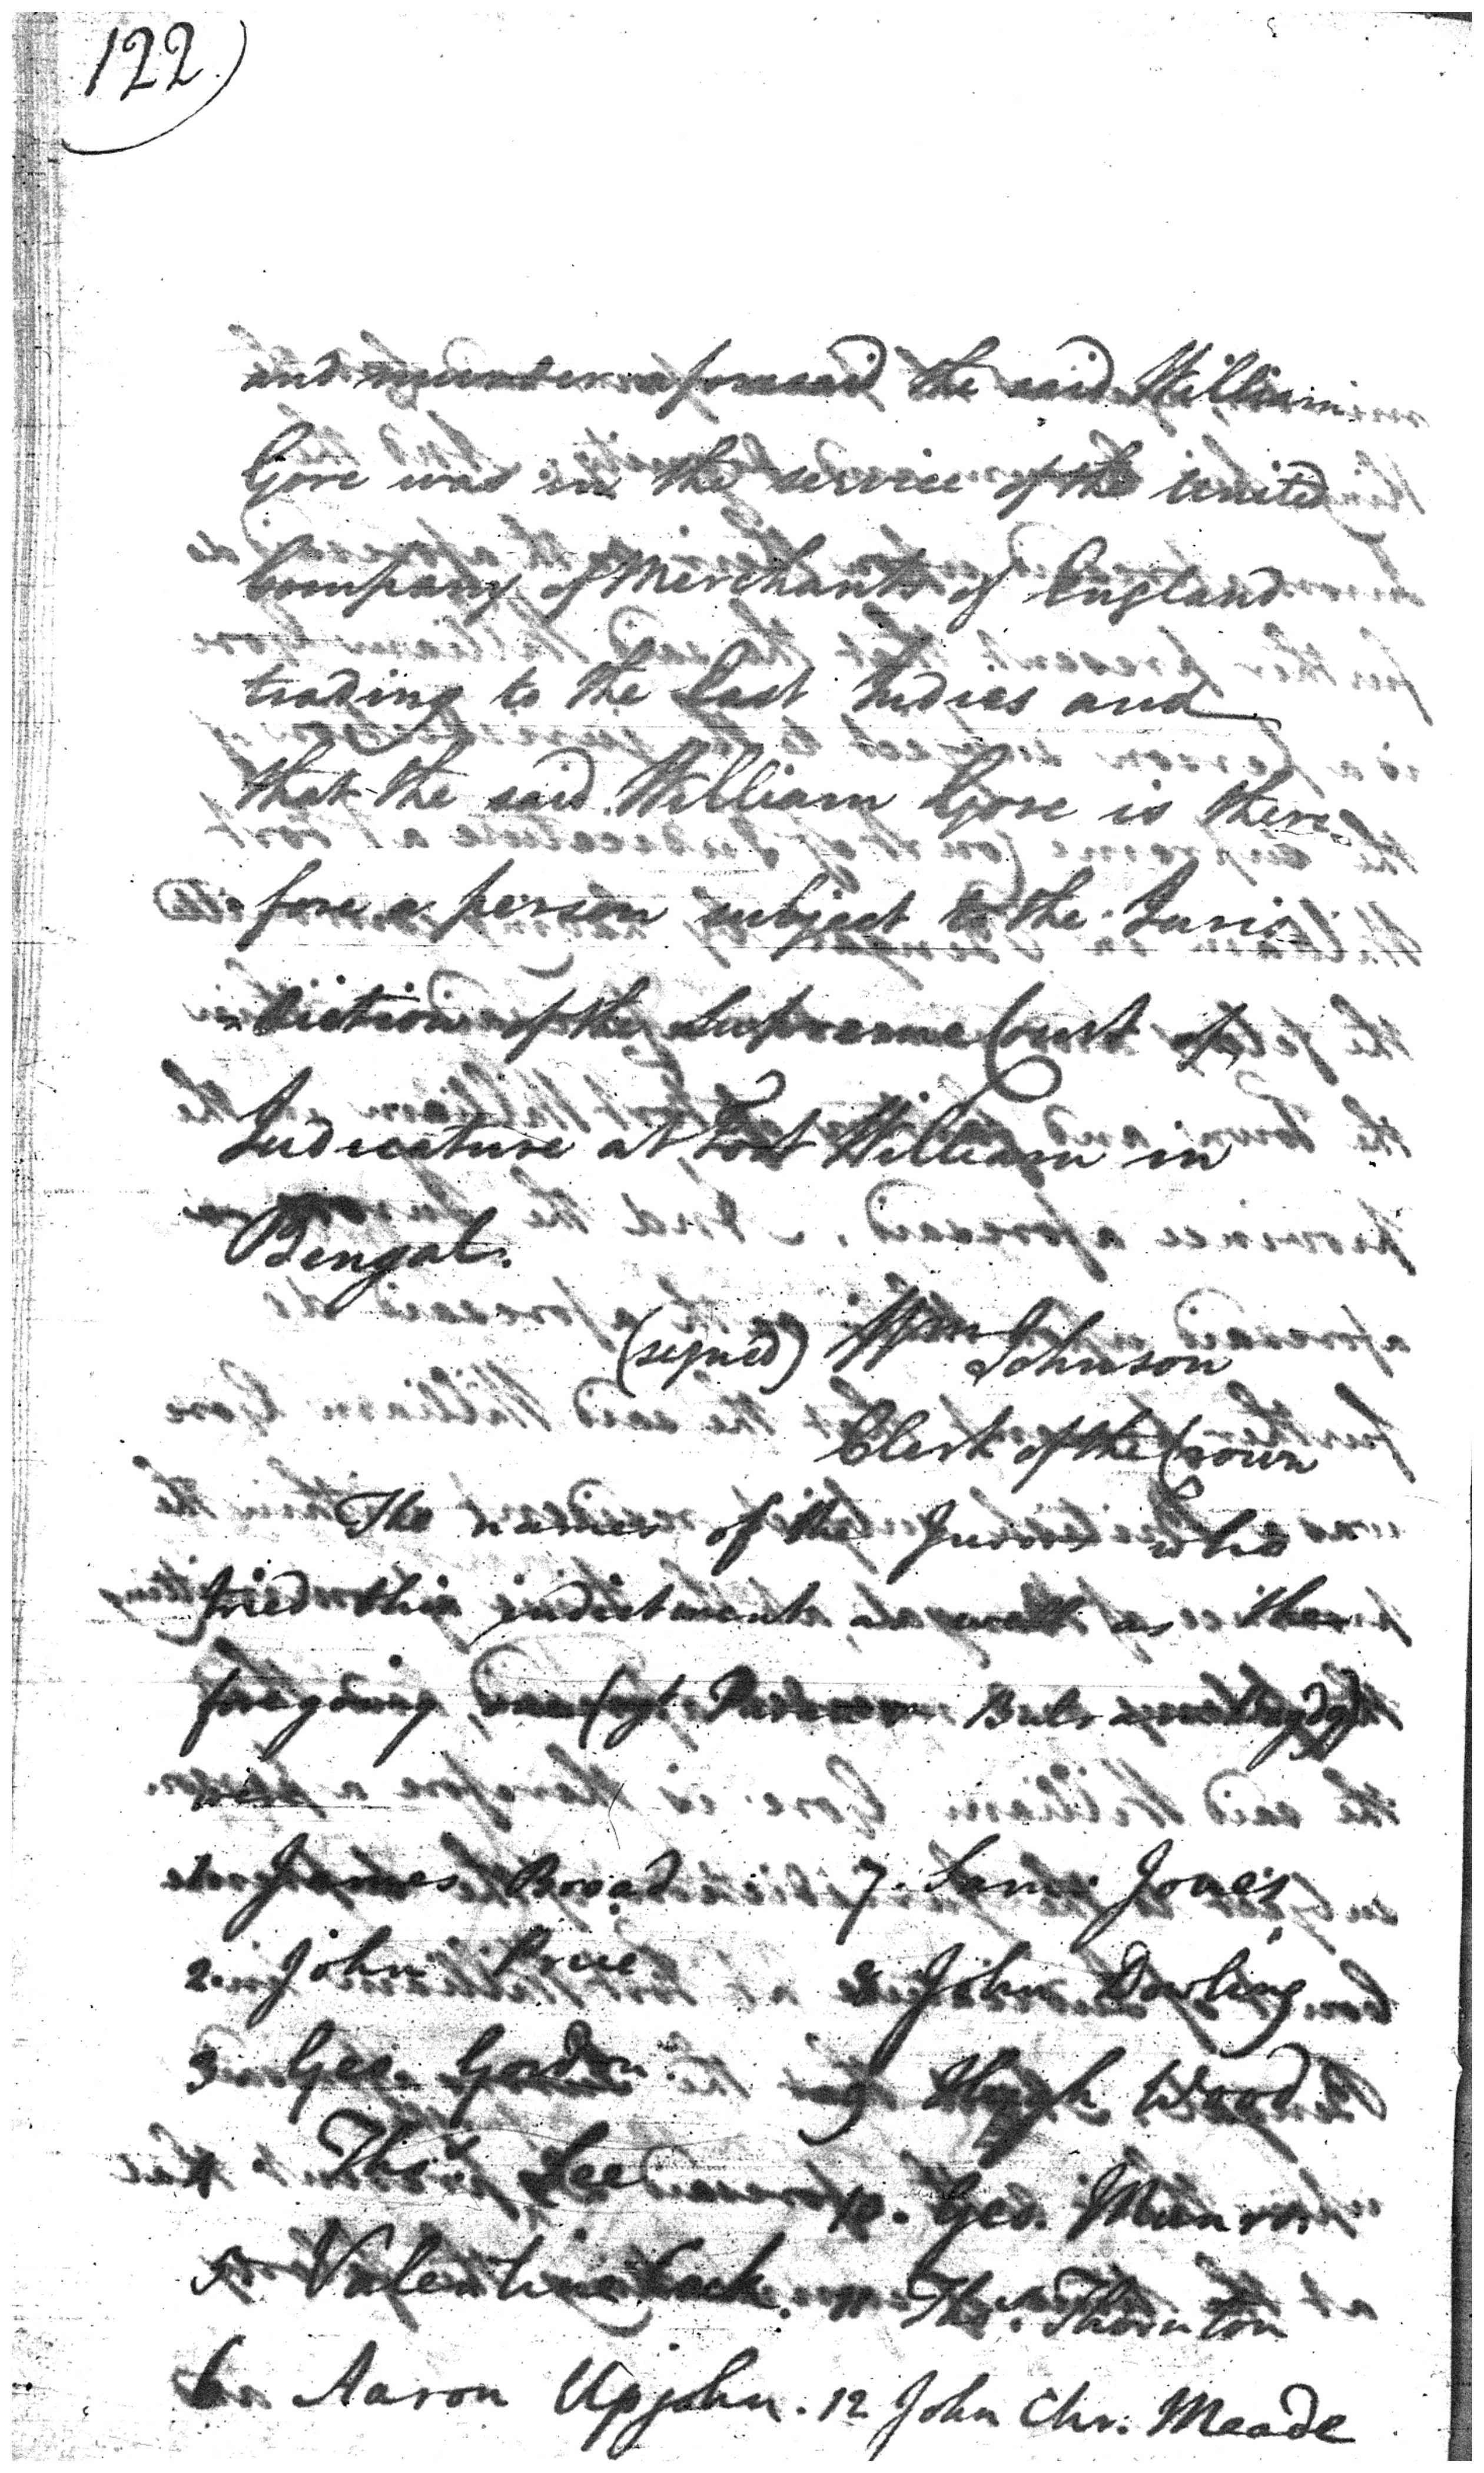 122)
and murder aforesaid the said William
Gore was in the service of the united
Company of Merchants of England
trading to the East Indies and
that the said William Gore is there-
-fore a person subject to the Juris-
-diction of the Supreme Court of
Judicature at Fort William in
Bengal.
(signed) Wm Johnson
Clerk of the Crown
The names of the Jurors who
tried this indictment, as well as the
foregoing,
were
1. James Broad 7. Saml. Jones
2. John Price 8 John Dowling
3 Geo. Gordon 9 Hugh Wood
4 Thos. Lee 10. Geo. Munro.
5. Valentine 11 Thos. Thornton
6 Aaron Upjohn. 12 John Chr. Meade